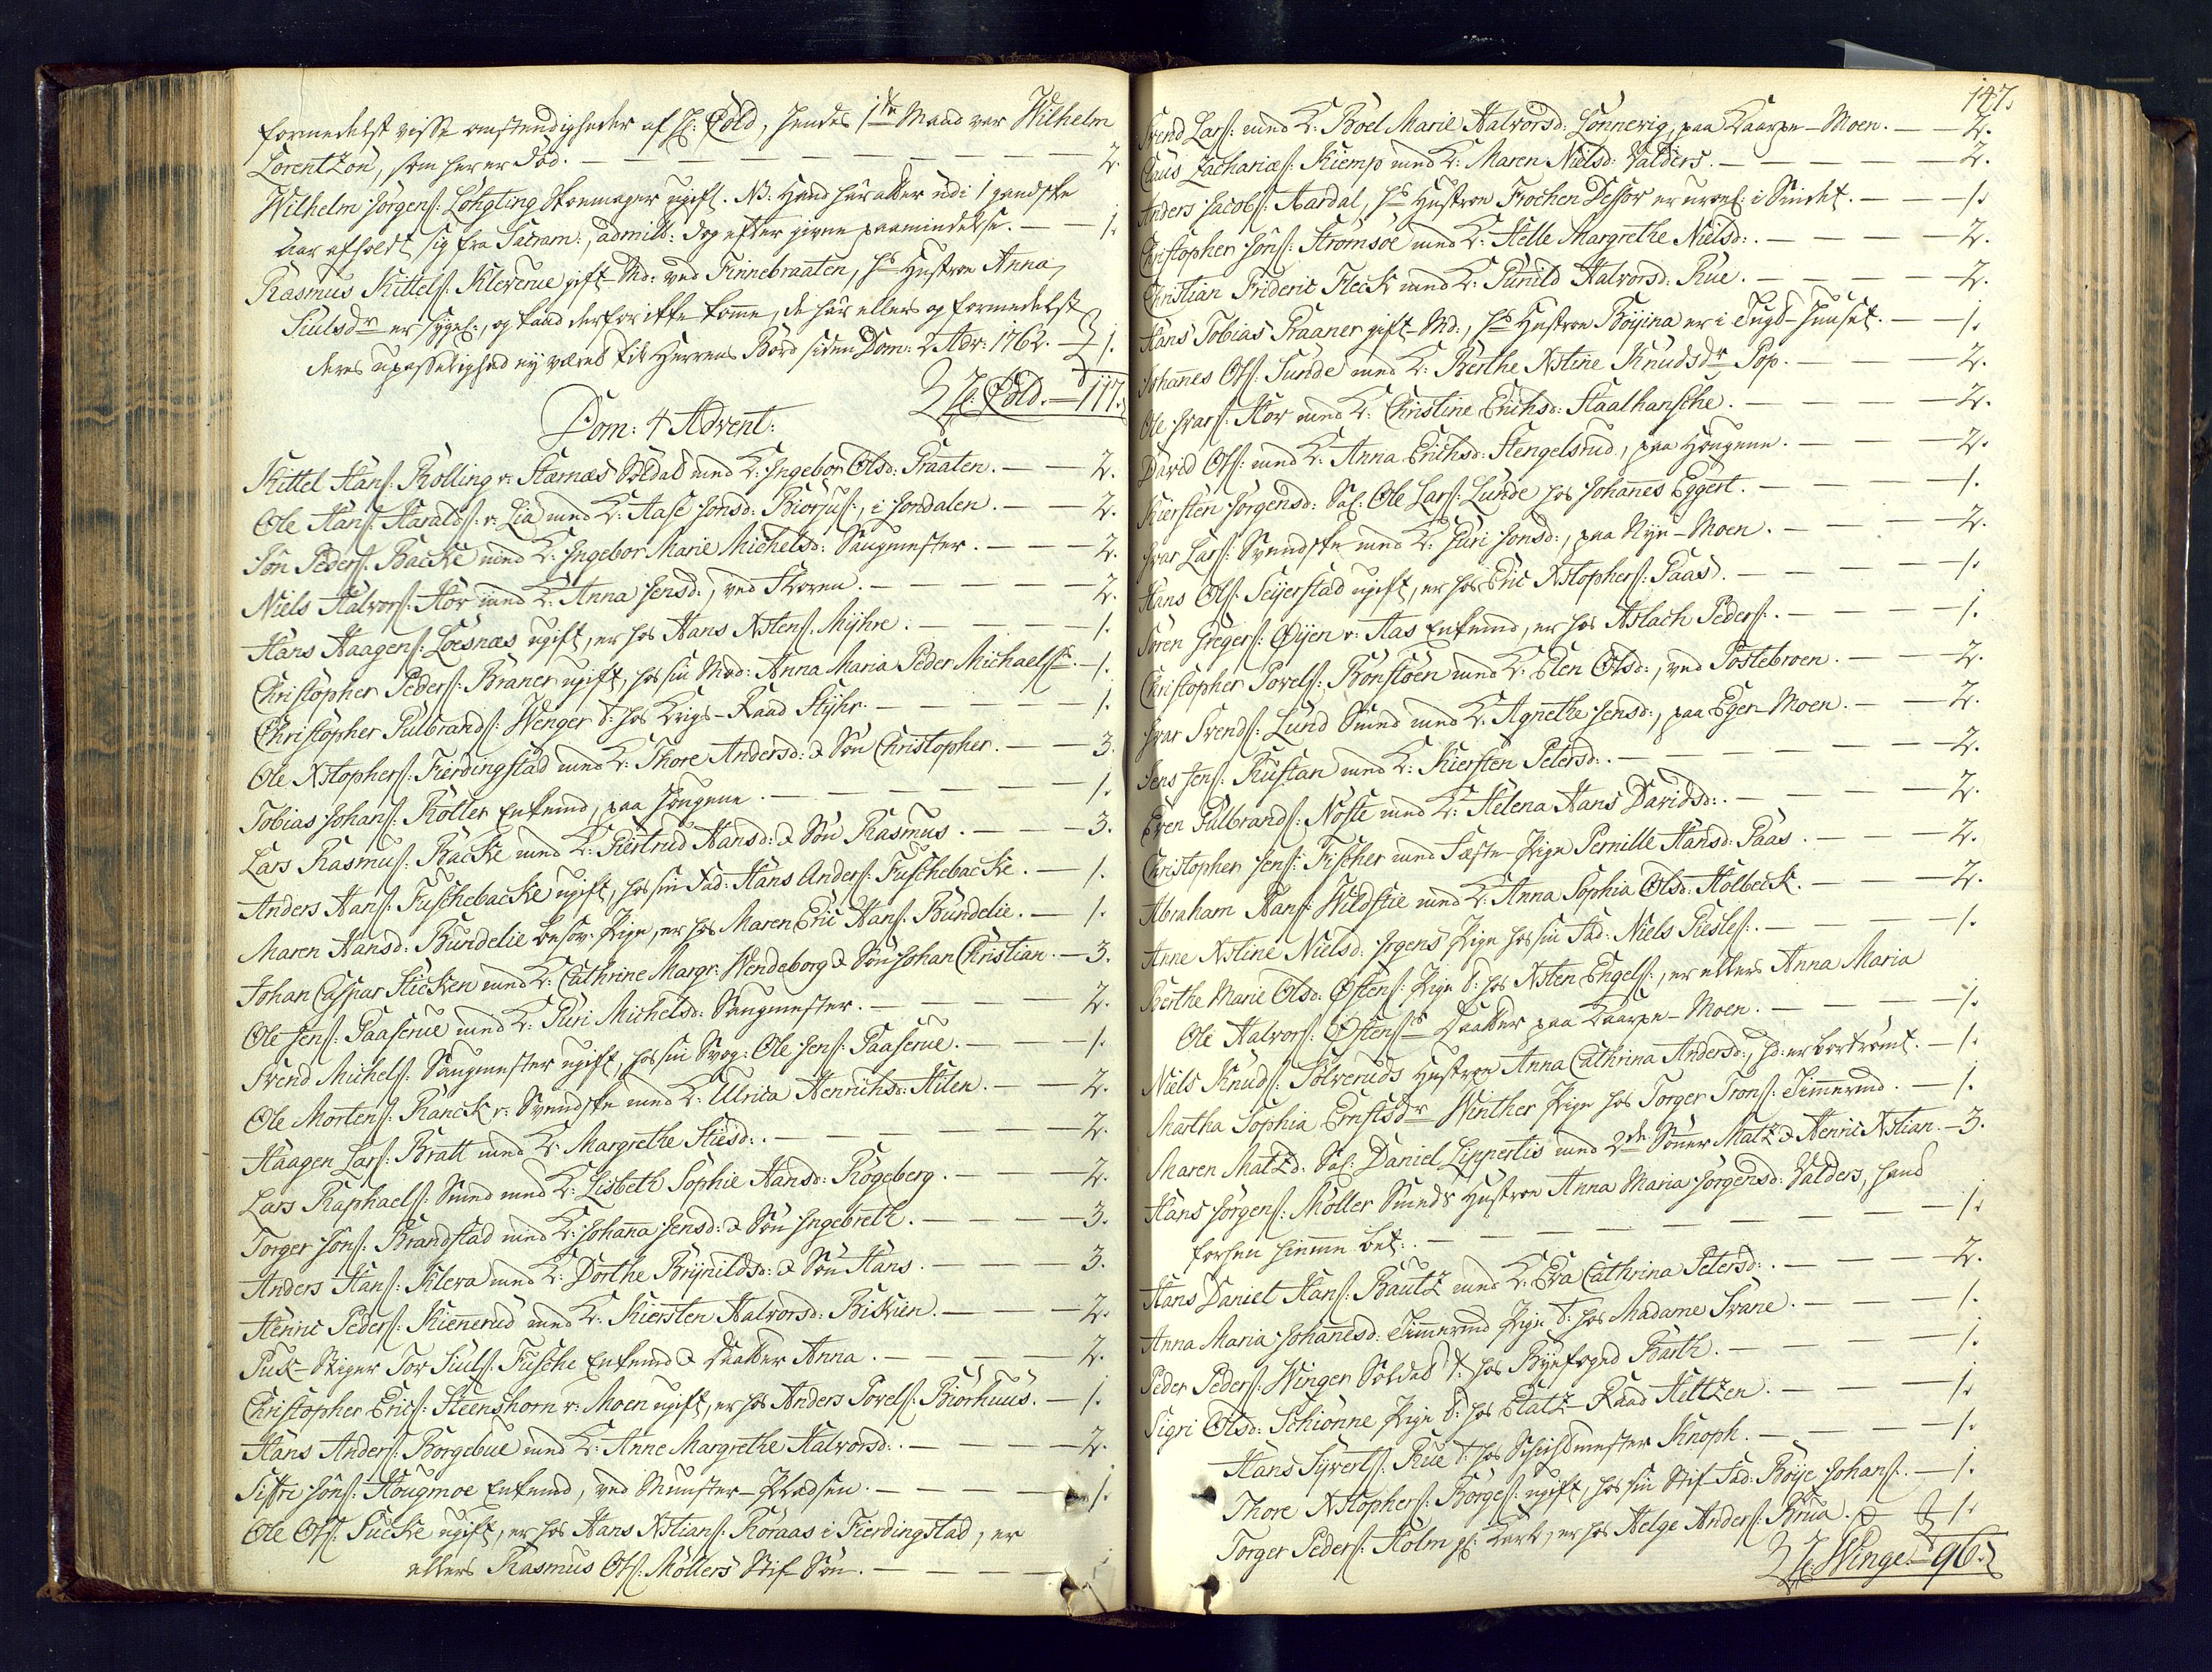 formedelst visse omstendigheder af H: Cold, hendes 1ste Mand var Wilhelm
Lorentzon, som her er død. — 2.
Wilhelm Jörgens: Løhgting Skoemager ugift. NB: Hand har atter udi 1 gandske
Aar afholdt sig fra Sacram:, admitt: dog efter given paamindelse. — 1.
Rasmus Kittels: Kleverue gift Md: ved Finnebraaten, hs Hustroe Anna
Siulsdr er sygel:, og kand derfor ikke komme, de har ellers og formedelst
deres upasselighed ej været til Herrens Bord siden Dom: 2 Adv: 1762. — 1.
H: Cold. — 117.
Dom: 4 Advent:
Kittel Hans: Rolling v: Stærnæs Soldat med K: Ingebor Olsd: Praaten. — 2.
Ole Hans: Haralds: v: Lia med K: Aase Jonsd: Biorjus:, i Jondalen. — 2.
Jon Peders: Backe med K: Ingebor Marie Michelsd: Saugmester. — 2.
Niels Halvors: Hor med K: Anna Jensd:, ved Skoven. — 2.
Hans Haagens: Loesnæs ugift, er hos Hans Xstens: Myhre. — 1.
Christopher Peders: Braner ugift, hos sin Mod: Anna Maria Peder Michaels: — 1.
Christopher Gulbrands: Wenger t: hos Krigs-Raad Styhr. — 1.
Ole Xstophers: Fierdingstad med K: Thore Andersd: & Søn Christopher. — 3.
Tobias Johans: Roller Enkemd, paa Hougene. — 1.
Lars Rasmus: Backe med K: Giertrud Hansd: & Søn Rasmus. — 3.
Anders Hans: Fuschebacke ugift, hos sin Fad: Hans Anders: Fuschebacke. — 1.
Maren Hansd: Bundelie besov: Pige, er hos Maren Eric Hans: Bundelie. — 1.
Johan Caspar Sticken med K: Cathrine Margr: Wendeborg & Søn Johan Christian. — 3.
Ole Jens: Gaaserue med K: Guri Michelsd: Saugmester. — 2.
Svend Michels: Saugmester ugift, hos sin Svog: Ole Jens: Gaaserue. — 1.
Ole Mortens: Ranck v: Svendske med K: Ulrica Henrichsd: Hilen. — 2.
Haagen Lars: Bratt med K: Margrethe Stiesd: — 2.
Lars Raphaels: Smed med K: Lisbeth Sophie Hansd: Rogeberg. — 2.
Torger Jons: Brandstad med K: Johana Jensd: & Søn Ingebreth. — 3.
Anders Hans: Kleva med K: Dorthe Brynildsd: & Søn Hans. — 3.
Henric Peders: Kienerud med K: Kiersten Halvorsd: Biskien. — 2.
Puk-Stiger Tor Siuls: Fusche Enkemd & Datter Anna. — 2.
Christopher Erics: Steenshorn v: Moen ugift, er hos Anders Povels: Biorhuus. — 1.
Hans Anders: Borgebue med K: Anne Margrethe Halvorsd: — 2.
Siffri Jons: Hougmoe Enkemd, ved Munster-Pladsen. — 1.
Ole Ols: Sucke ugift, er hos Hans Xstians: Roraas i Fierdingstad, er
ellers Rasmus Ols: Møllers Stif Søn. — 1
147.
Svend Lars: med K: Boel Marie Halvorsd: Lonnevig, paa Kaarpe-Moen. — 2.
Claus Zacharias: Kiemp med K: Maren Nielsd: Valders. — 2.
Anders Jacobs: Aardal, hs Hustroe Trochen Defsor er urol: i Sindet. — 1.
Christopher Jons: Strømsoe med K: Helle Margrethe Nielsd: — 2.
Christian Frideric Fleck med K: Gunild Halvorsd: Rue. — 2.
Hans Tobias Graaner gift Md:, hs Hustroe Boyina er i Tugt-Huuset. — 1.
Johanes Ols: Tunde med K: Berthe Xstine Knudsdr Pop. — 2.
Ole Ivars: Hor med K: Christine Erichsd: Staalhansche. — 2.
David Ols: med K: Anna Erichsd: Stengelsrud, paa Hougene. — 2.
Kiersten Jorgensd: Sal: Ole Lars: Lunde hos Johanes Eggert. — 1.
Ivar Lars: Svendske med K: Guri Jonsd:, paa Nye-Moen. — 2.
Hans Ols: Seyerstad ugift, er hos Eric Xstophers: Gaas. — 1.
Soren Gregers: Øyen v: Aas Enkemd, er hos Aslach Peders: — 1.
Christopher Povels: Bonsloen med K: Elen Olsd:, ved Postebroen. — 2.
Ivar Svends: Lund Smed med K: Agnethe Jensd:, paa Eger-Moen. — 2.
Jens Jens: Rustan med K: Kiersten Petersd: — 2.
Even Gulbrands: Noste med K: Helena Hans Davidsd: — 2.
Christopher Jens: Fischer med Fæste-Pige Pernille Hansd: Gaas. — 2.
Abraham Hans: Wildstie med K: Anna Sophia Olsd: Holbeck. — 2.
Anne Xstine Nielsd: Irgens Pige hos sin Fad: Niels Giesles: — 1.
Berthe Marie Olsd: Østens: Pige t: hos Xsten Engels:, er ellers Anna Maria
Ole Halvors: Østens:s Datter paa Kaarpe-Moen. — 1.
Niels Knuds: Solveruds Hustroe Anna Cathrina Andersd:, hd: er bortrømt. — 1.
Martha Sophia Ernstsdr Winther Pige hos Torger Trons: Timermd. — 1.
Maren Matzd: Sal: Daniel Lippertis med 2de Sønner Matz & Henric Xstian. — 3.
Hans Jorgens: Møller Smeds Hustroe Anna Maria Jorgensd: Valders, hand
forhen hieme bet: — 1.
Hans Daniel Hans: Bautz med K: Eva Cathrina Petersd: — 2.
Anna Maria Johanesd: Timermd Pige t: hos Madame Svane. — 1.
Peder Peders: Winger Soldat t: hos Byefoged Barth. — 1.
Sigri Olsd: Schionne Pige t: hos Etatz-Raad Heltzen. — 1.
Hans Syverts: Rue t: hos Schichtmester Knoph. — 1.
Thore Xstophers: Borges: ugift, hos sin Stif Fad: Boye Johans: — 1.
Torger Peders: Holm gl: Karl, er hos Helge Anders: Brua. — 1.
H: Winge. — 96.